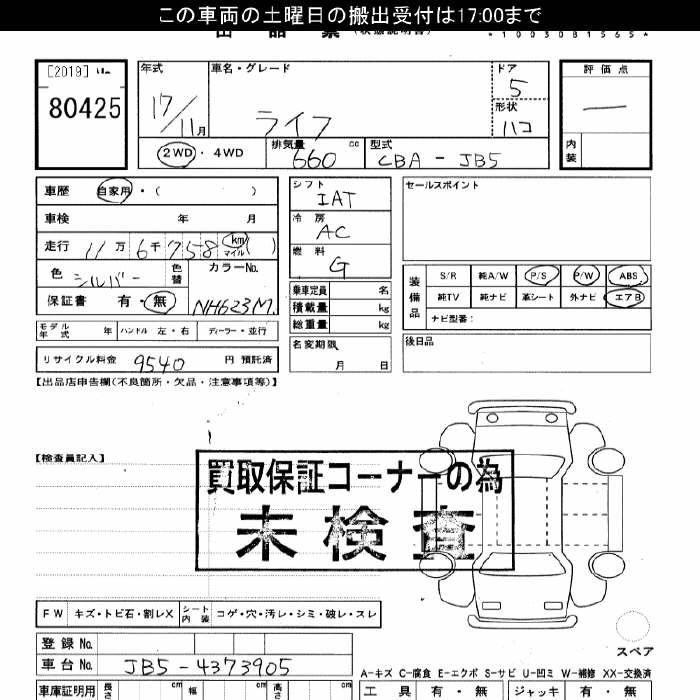 この車両の土曜日の搬出受付は17:00まで
出品票(状態説明書)
*1003081565*
[2019]
80425
年式 17/11月
車名・グレード ライフ
ドア 5
形状 ハコ
評価点 —
内装
2WD・4WD
排気量 660 cc
型式 CBA - JB5
車歴 自家用・( )
車検 年 月
走行 11万6千758 km マイル ( )
色 シルバー 色替 カラーNo. NH623M.
保証書 有・無
モデル年式 年 ハンドル 左・右 ディーラー・並行
リサイクル料金 9540 円 預託済
シフト IAT
冷房 AC
燃料 G
乗車定員 名
積載量 kg
総重量 kg
名変期限 月 日
セールスポイント
装備品 S/R 純A/W P/S P/W ABS
純TV 純ナビ 革シート 外ナビ エアB
ナビ型番:
後日品
【出品店申告欄(不良箇所・欠品・注意事項等)】
【検査員記入】
買取保証コーナーの為
未検査
FW キズ・トビ石・割レX シート内装 コゲ・穴・汚レ・シミ・破レ・スレ
登録No.
車台No. JB5-4373905
車庫証明用 長さ cm 幅 cm 高さ cm
スペア
A-キズ C-腐食 E-エクボ S-サビ U-凹ミ W-補修 XX-交換済
工具 有・無 ジャッキ 有・無